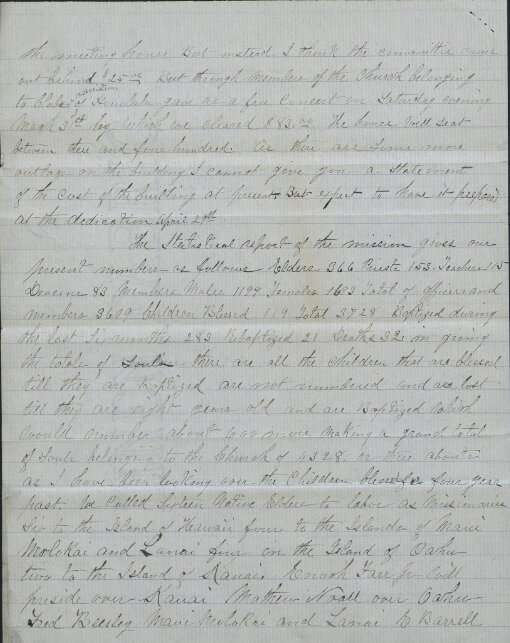 the meeting house But insterd I think the committee came
out behind $25.00 But through members of the Church belonging
to Clubs of Honolulu gave us a free Concert on Saturday evening
March 3rd by which we cleared $83.00 The house will seat
betwen three and five hundred. As there are some more
outlage on the building I cannot give you a Statement
of the cost of the building at present, But expect to have it prepared
at the dedication April 29th
The Statistical report of the mission gives our
present numbers as follows Elders 366 Priests 153 Teachers 115
Deacons 83 Members Males 1199 Females 1693 Total of officers and
members 3609 Children Blessed 119 Total 3728 Baptized during
the last Six months 283 Rebaptized 21 Deaths 32 in giving
the totals of Souls there are all the children that are blessed
till they are Baptized are not numbered and are lost
till they are eight years old and are Baptized which
would number about 600 more making a grand total
of Souls belonging to the Church of 4328 or there abouts
as I have been looking over the Children blessed for four year
past. We called Sixteen Native Elders to labor as Missionaries
Six to the Island of Hawaii four to the Islands of Maui
Molokai and Lanai four on the Island of Oahu
two to the Island of Kauai. Enoch Farr Jr will
preside over Kauai Mathew Noall over Oahu
Fred Beesley Maui Molokai and Lanai E Barrell